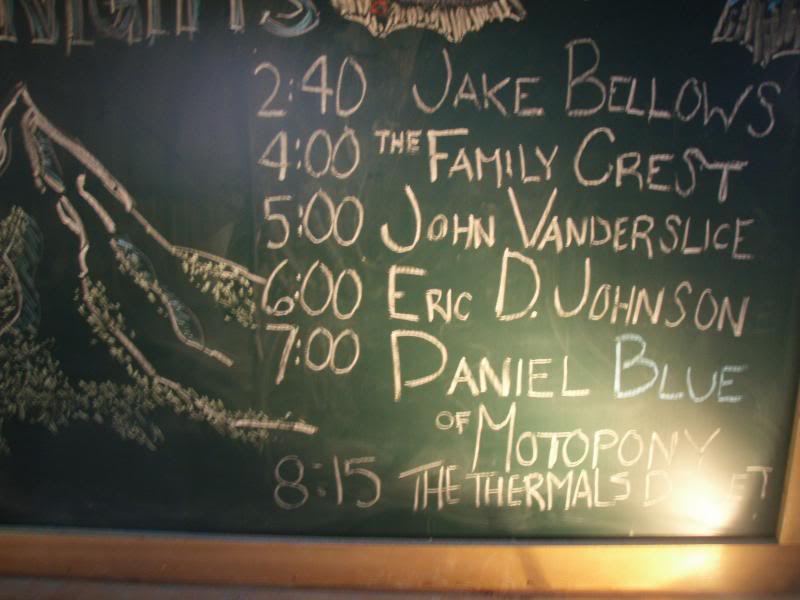 NIGHTS
2:40 JAKE BELLOWS
4:00 THE FAMILY CREST
5:00 JOHN VANDERSLICE
6:00 ERIC D. JOHNSON
7:00 DANIEL BLUE
OF MOTOPONY
8:15 THE THERMALS